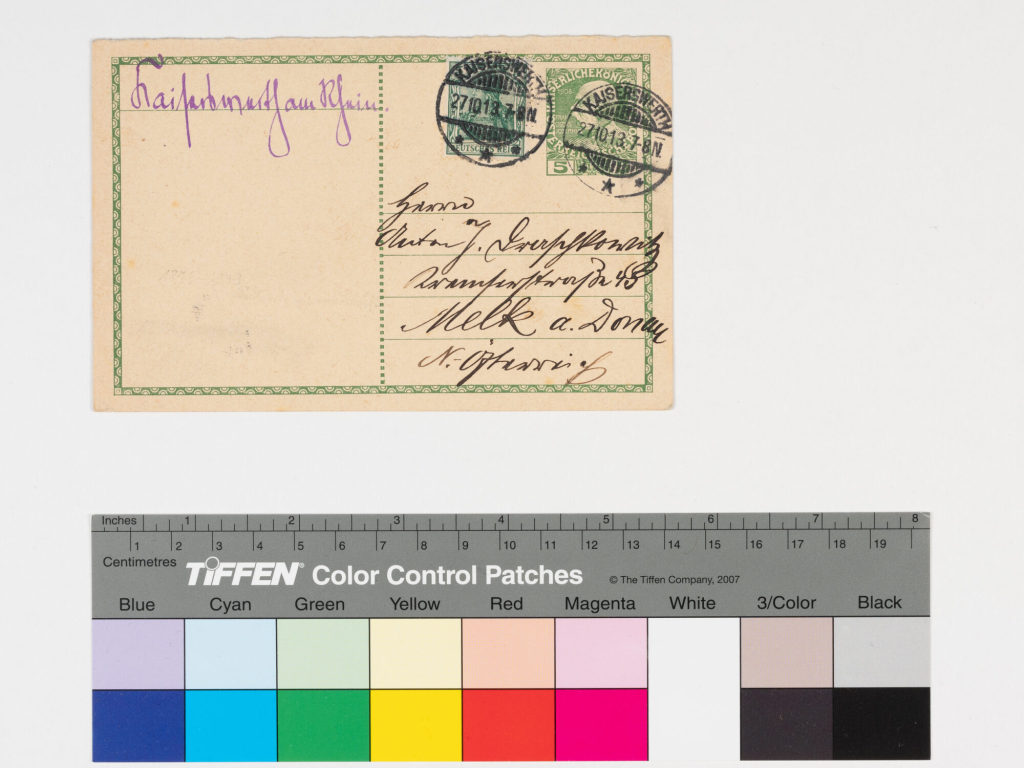 Kaiserswerth am Rhein.
KAISERSWERTH
27.10.13.7-8N.
DEUTSCHES REICH
KAISERSWERTH
27.10.13.7-8N.
1908
5
Herrn
Anton J. Draschkowitz
Kremserstraße 45
Melk a. Donau
N.-Österreich
Inches 1 2 3 4 5 6 7 8
1 2 3 4 5 6 7 8 9 10 11 12 13 14 15 16 17 18 19
Centimetres
TIFFEN® Color Control Patches © The Tiffen Company, 2007
Blue Cyan Green Yellow Red Magenta White 3/Color Black